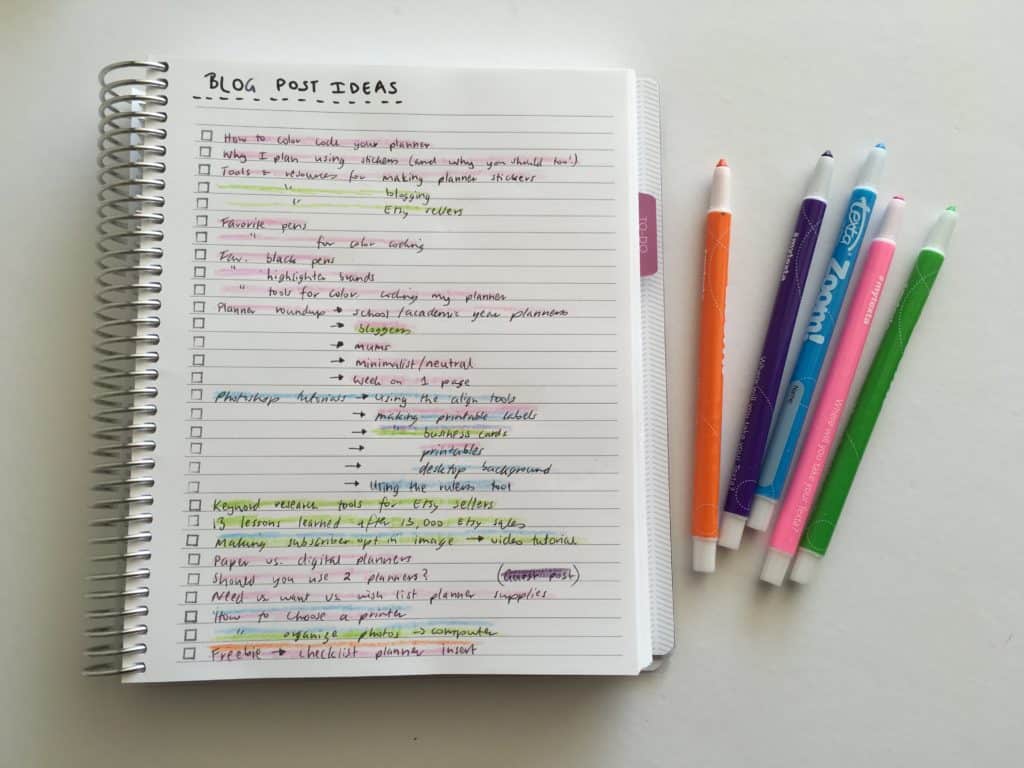 BLOG POST IDEAS
How to color code your planner
Why I plan using stickers (and why you should too!)
Tools & resources for making planner stickers
" blogging
" Etsy sellers
Favorite pens
" for color coding
Fav. black pens
" highlighter brands
" tools for color coding my planner
Planner roundup → school/academic year planners
→ bloggers
→ mums
→ minimalist/neutral
→ week on 1 page
Photoshop tutorials → using the align tools
→ making printable labels
→ " business cards
→ printables
→ desktop background
→ using the rulers tool
Keyword research tools for Etsy sellers
13 lessons learned after 13,000 Etsy sales
Making subscriber opt in image → video tutorial
Paper vs. digital planners
Should you use 2 planners? (Guest post)
Need vs want vs wish list planner supplies
How to choose a printer
" organize photos → computer
Freebie → checklist planner insert
TO DO
texta Zoom!
#mytexta
#mytexta
Where will you take your Texta?
Where will you take your Texta?